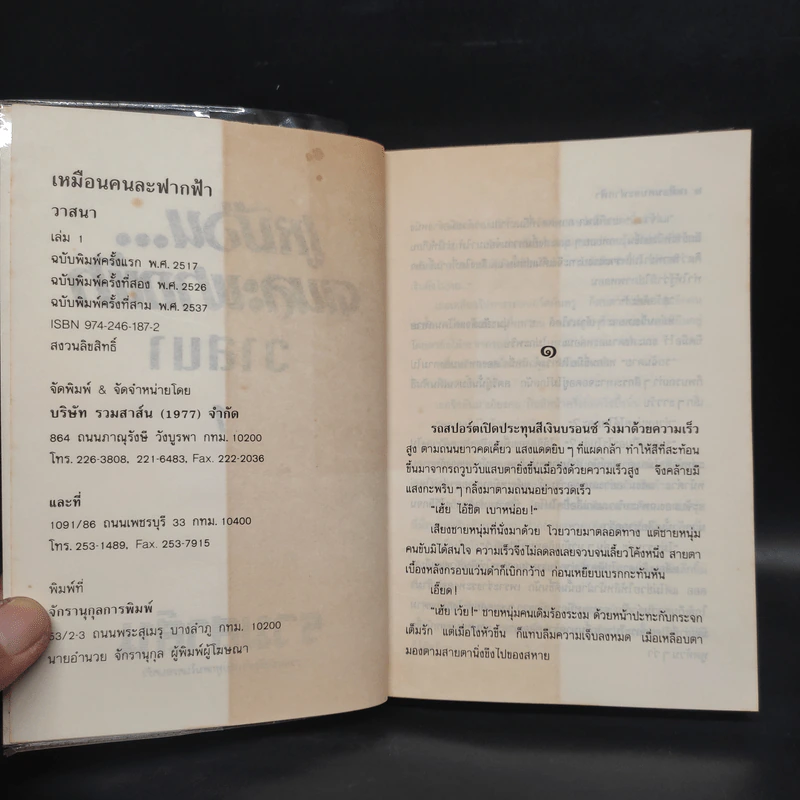 เหมือนคนละฟากฟ้า
วาสนา
เล่ม 1
ฉบับพิมพ์ครั้งแรก พ.ศ. 2517
ฉบับพิมพ์ครั้งที่สอง พ.ศ. 2526
ฉบับพิมพ์ครั้งที่สาม พ.ศ. 2537
ISBN 974-246-187-2
สงวนลิขสิทธิ์
จัดพิมพ์ & จัดจำหน่ายโดย
บริษัท รวมสาส์น (1977) จำกัด
864 ถนนภาณุรังษี วังบูรพา กทม. 10200
โทร. 226-3808, 221-6483, Fax. 222-2036
และที่
1091/86 ถนนเพชรบุรี 33 กทม. 10400
โทร. 253-1489, Fax. 253-7915
พิมพ์ที่
จักรานุกูลการพิมพ์
53/2-3 ถนนพระสุเมรุ บางลำภู กทม. 10200
นายอำนวย จักรานุกูล ผู้พิมพ์ผู้โฆษณา
๑
รถสปอร์ตเปิดประทุนสีเงินบรอนซ์ วิ่งมาด้วยความเร็ว
สูง ตามถนนยาวคดเคี้ยว แสงแดดยิบๆ ที่แผดกล้า ทำให้สีที่สะท้อน
ขึ้นมาจากรถวูบวับแสบตายิ่งขึ้นเมื่อวิ่งด้วยความเร็วสูง จึงคล้ายมี
แสงกะพริบๆ กลิ้งมาตามถนนอย่างรวดเร็ว
"เฮ้ย ไอ้ชิด เบาหน่อย!"
เสียงชายหนุ่มที่นั่งมาด้วย โวยวายมาตลอดทาง แต่ชายหนุ่ม
คนขับมิได้สนใจ ความเร็วจึงไม่ลดลงเลยจวบจนเลี้ยวโค้งหนึ่ง สายตา
เบื้องหลังกรอบแว่นดำก็เบิกกว้าง ก่อนเหยียบเบรกกะทันหัน
เอี๊ยด!
"เฮ้ย เว้ย!" ชายหนุ่มคนเดิมร้องระงม ด้วยหน้าปะทะกับกระจก
เต็มรัก แต่เมื่อโงหัวขึ้น ก็แทบลืมความเจ็บลงหมด เมื่อเหลือบตา
มองตามสายตานิ่งขึงไปของสหาย